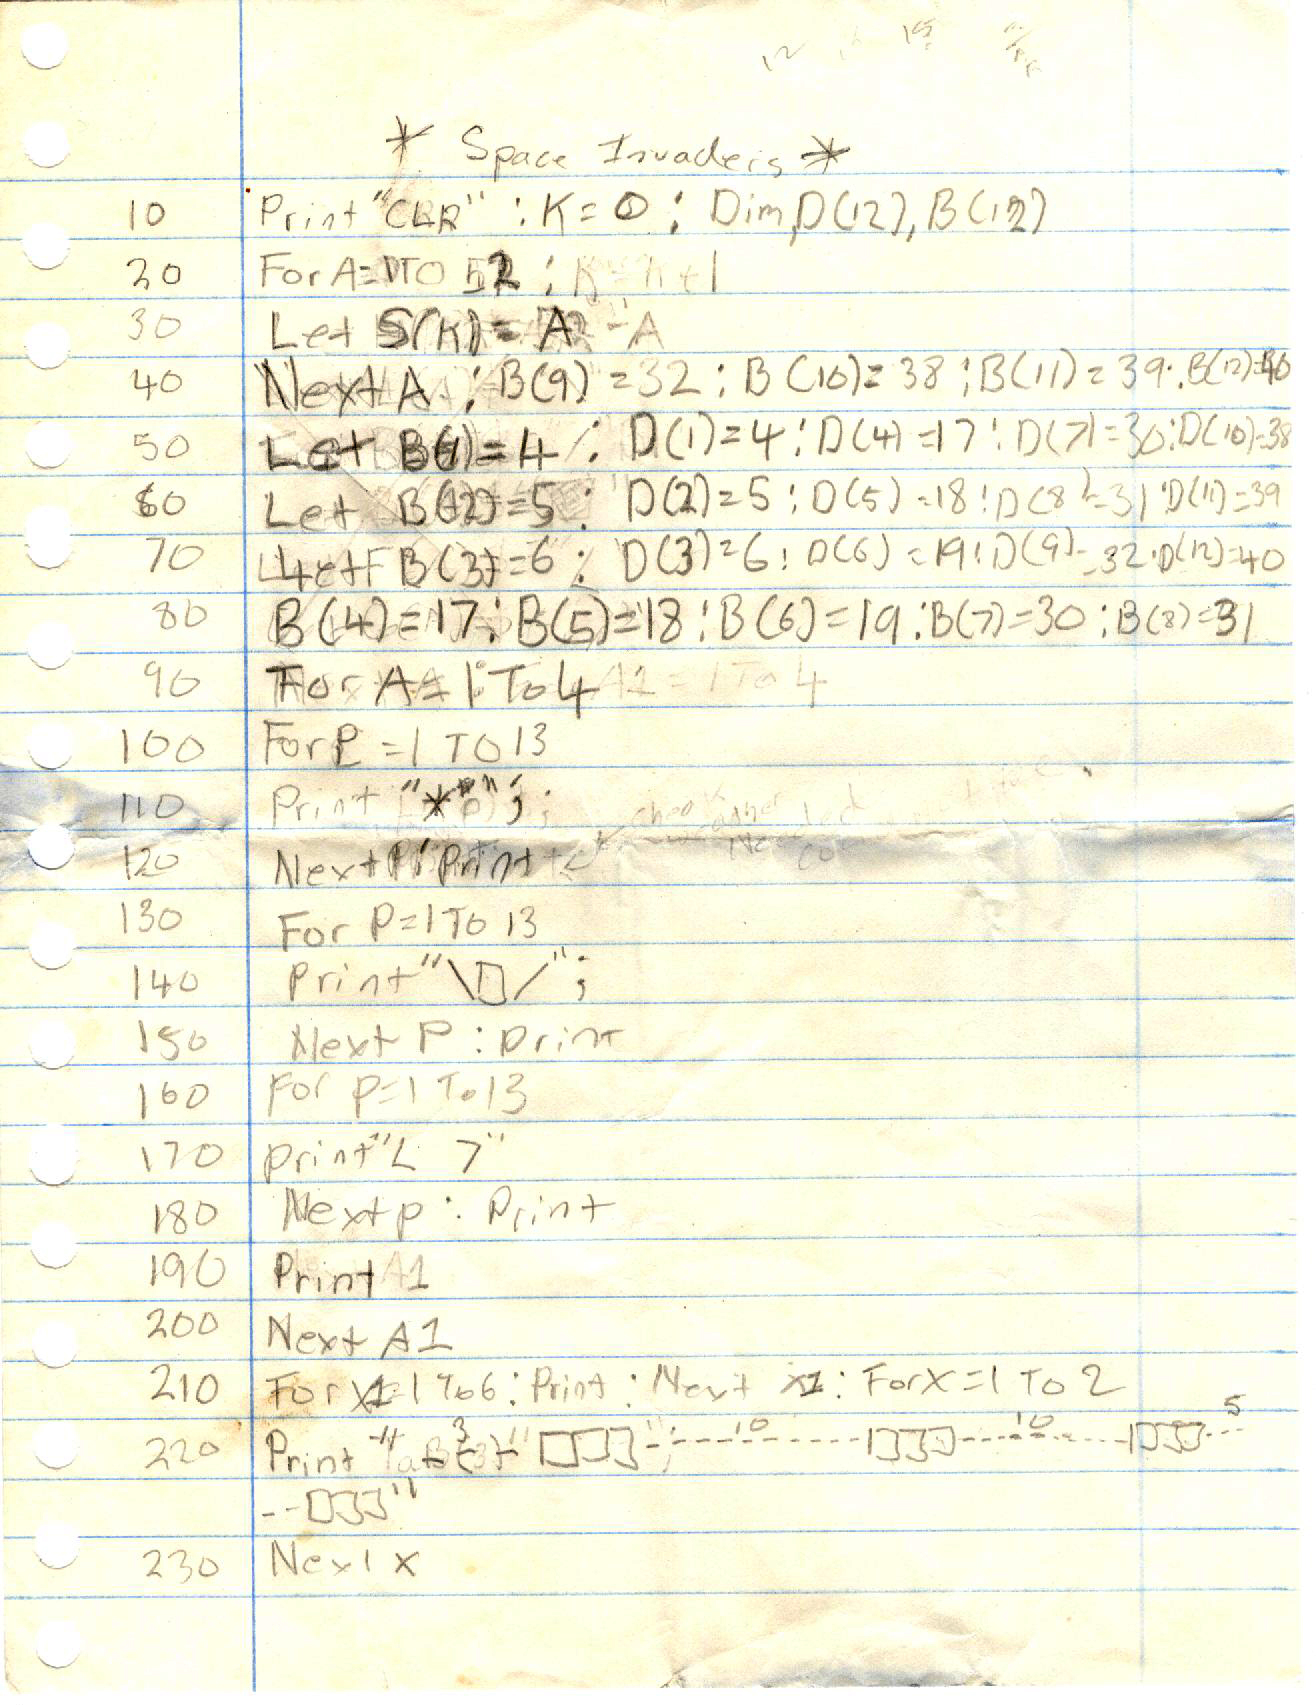 * Space Invaders *
10 Print "CLR" : K=0 : Dim D(12), B(12)
20 For A=1 TO 52 : K=K+1
30 Let S(K)=A
40 Next A : B(9)=32 : B(10)=38 : B(11)=39 : B(12)=40
50 Let B(1)=4 : D(1)=4 : D(4)=17 : D(7)=30 : D(10)=38
60 Let B(2)=5 : D(2)=5 : D(5)=18 : D(8)=31 : D(11)=39
70 Let B(3)=6 : D(3)=6 : D(6)=19 : D(9)=32 : D(12)=40
80 B(4)=17 : B(5)=18 : B(6)=19 : B(7)=30 : B(8)=31
90 For A=1 To 4 A1=1 To 4
100 For P=1 TO 13
110 Print
120 Next P : Print
130 For P=1 To 13
140 Print "\□/" ;
150 Next P : print
160 For p=1 To 13
170 print "L 7"
180 Next p : Print
190 Print A1
200 Next A1
210 For X1=1 To 6 : Print : Next X1 : For X=1 To 2
220 Print 10 10 5
230 Next X